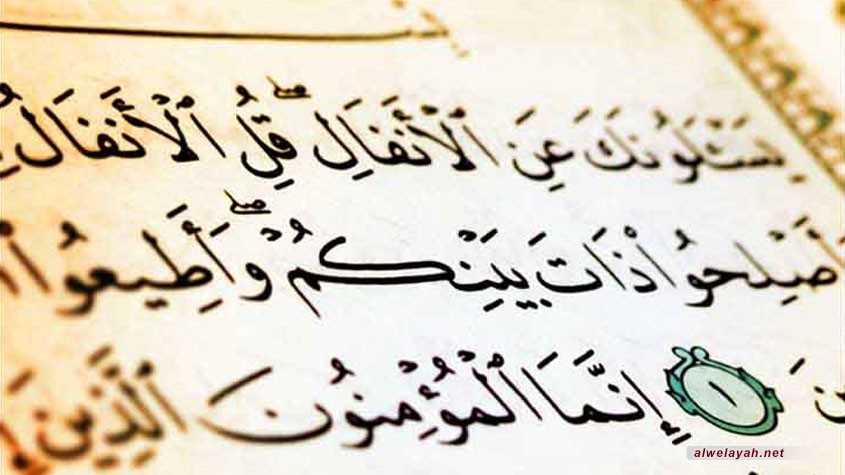 يَسْـَٔلُونَكَ عَنِ ٱلْأَنفَالِ ۖ قُلِ ٱلْأَنفَالُ
أَصْلِحُوا۟ ذَاتَ بَيْنِكُمْ ۖ وَأَطِيعُوا۟
١ إِنَّمَا ٱلْمُؤْمِنُونَ ٱلَّذِينَ
alwelayah.net